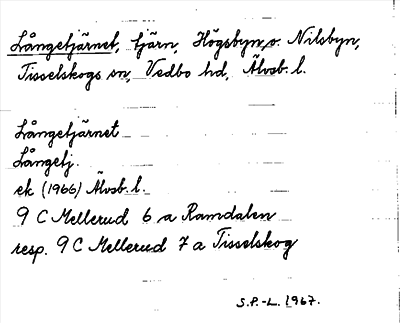 Långetjärnet, tjärn, Högsbyn, o. Nilsbyn,
Tisselskogs sn, Vedbo hd, Älvsb. l.
Långetjärnet
Långetj.
ek (1966) Älvsb. l.
9 C Mellerud 6 a Ramdalen
resp. 9 C Mellerud 7 a Tisselskog
S.P.-L. 1967.